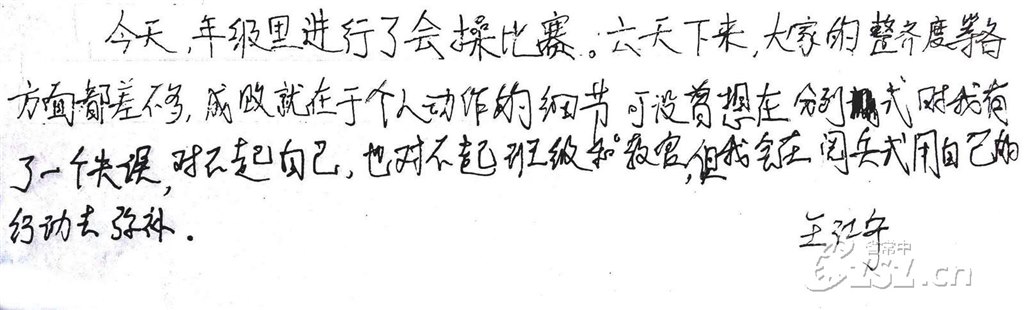 今天,年级里进行了会操比赛。六天下来,大家的整齐度等各
方面都差不多,成败就在于个人动作的细节 可没曾想在 分列式时我有
了一个失误,对不起自己,也对不起班级和教官,但我会在阅兵式用自己的
行动去弥补.
省常中
CZSZ.cn